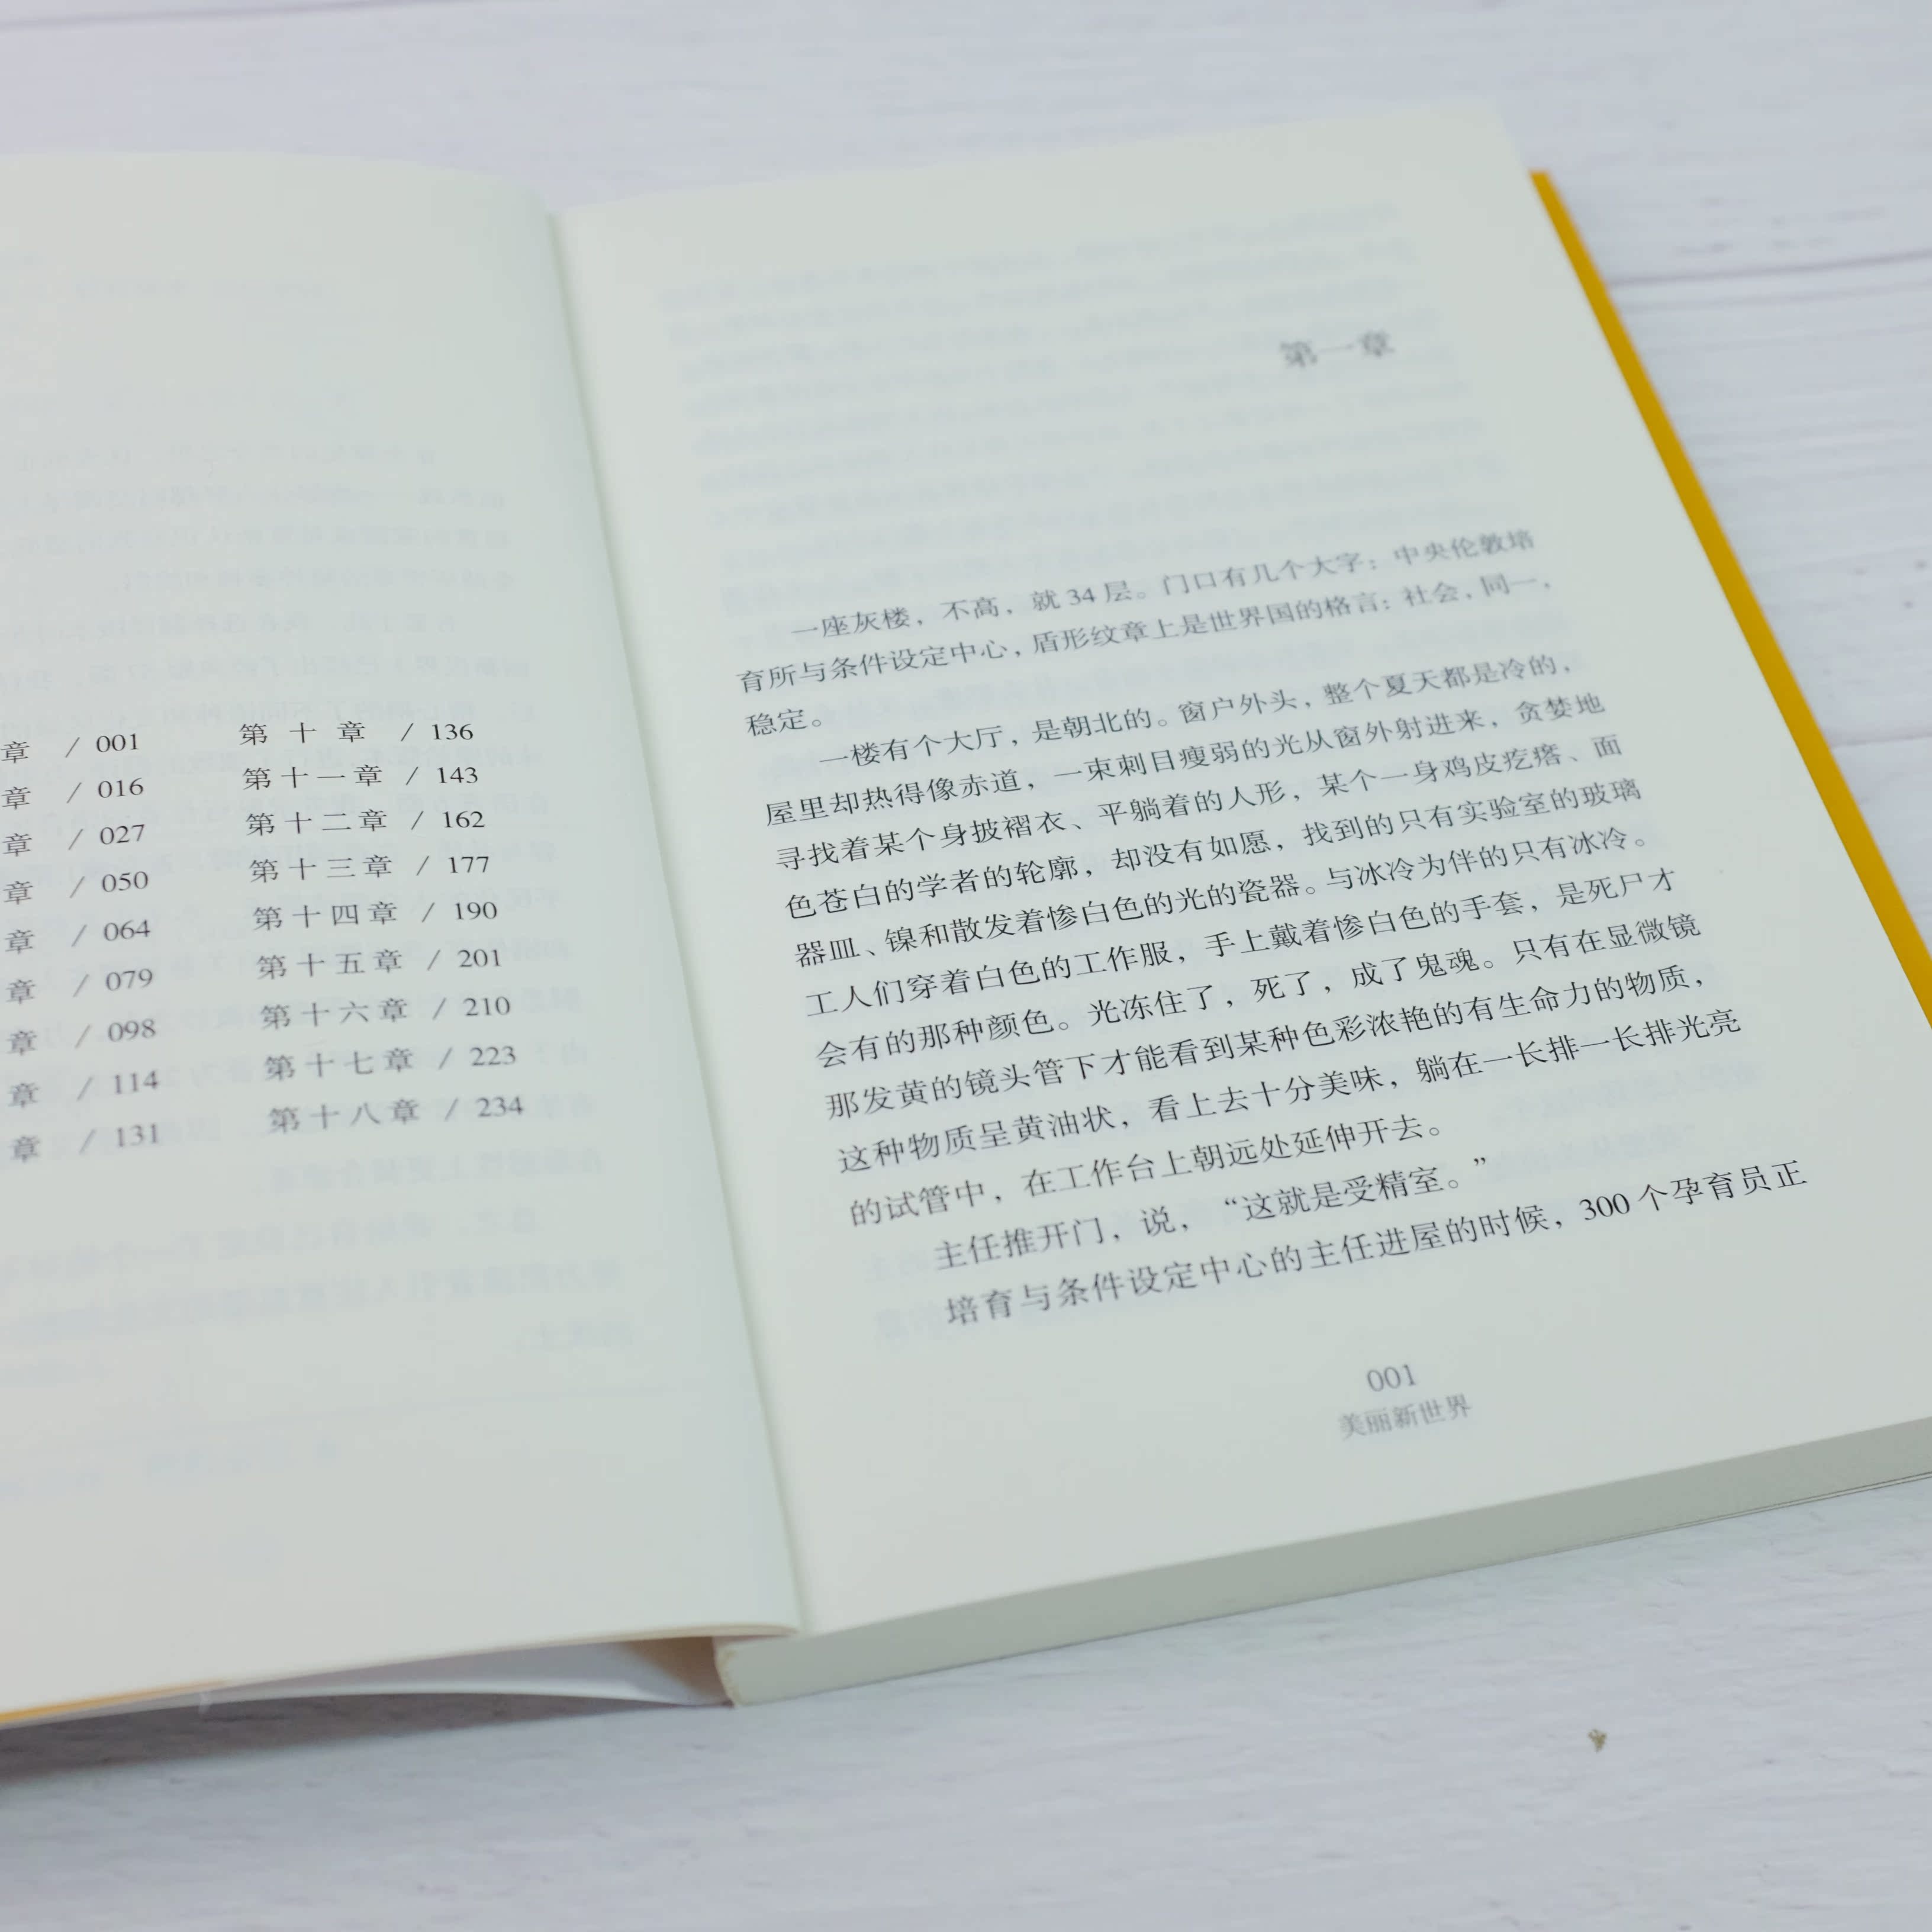 章 / 001
章 / 016
章 / 027
章 / 050
章 / 064
章 / 079
章 / 098
章 / 114
章 / 131
第十章 / 136
第十一章 / 143
第十二章 / 162
第十三章 / 177
第十四章 / 190
第十五章 / 201
第十六章 / 210
第十七章 / 223
第十八章 / 234
第一章
一座灰楼，不高，就34层。门口有几个大字：中央伦敦培
育所与条件设定中心，盾形纹章上是世界国的格言：社会，同一，
稳定。
一楼有个大厅，是朝北的。窗户外头，整个夏天都是冷的，
屋里却热得像赤道，一束刺目瘦弱的光从窗外射进来，贪婪地
寻找着某个身披褶衣、平躺着的人形，某个一身鸡皮疙瘩、面
色苍白的学者的轮廓，却没有如愿，找到的只有实验室的玻璃
器皿、镍和散发着惨白色的光的瓷器。与冰冷为伴的只有冰冷。
工人们穿着白色的工作服，手上戴着惨白色的手套，是死尸才
会有的那种颜色。光冻住了，死了，成了鬼魂。只有在显微镜
那发黄的镜头管下才能看到某种色彩浓艳的有生命力的物质，
这种物质呈黄油状，看上去十分美味，躺在一长排一长排光亮
的试管中，在工作台上朝远处延伸开去。
主任推开门，说，“这就是受精室。”
培育与条件设定中心的主任进屋的时候，300个孕育员正
001
美丽新世界